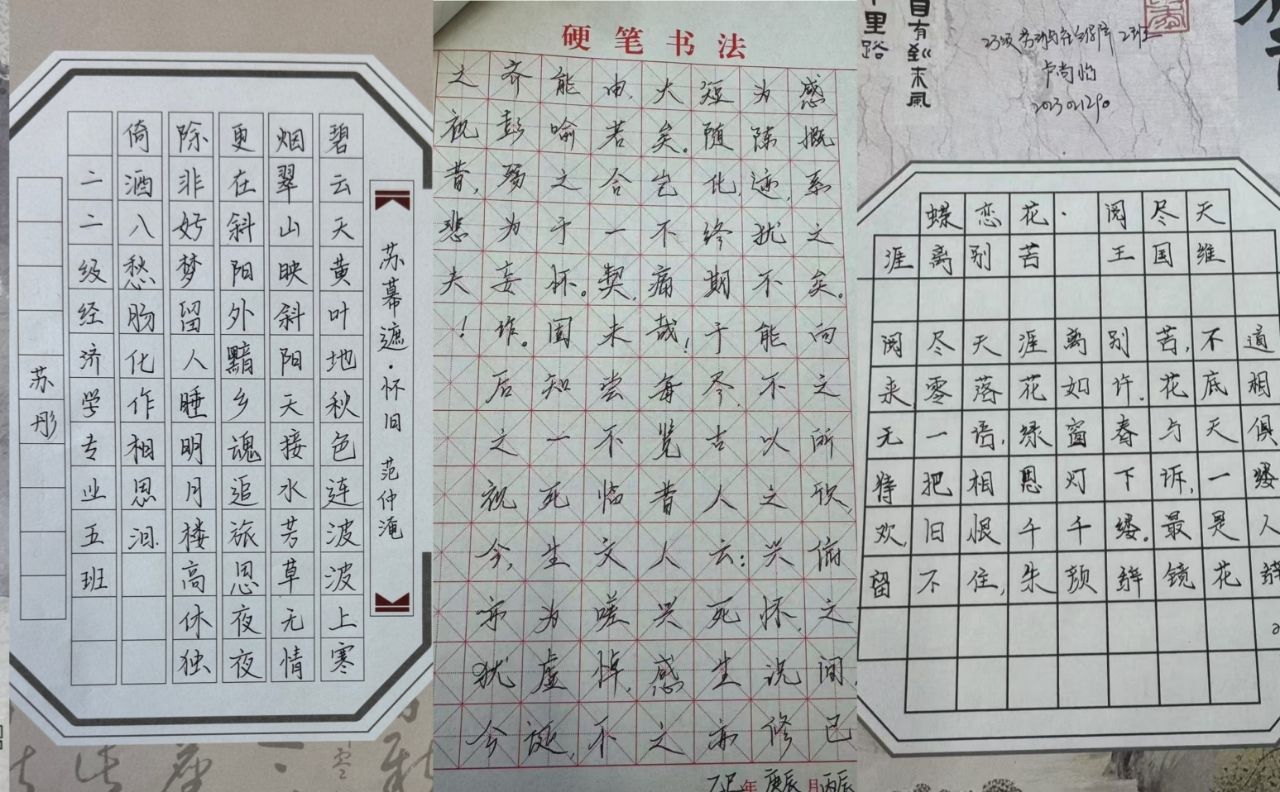 苏幕遮·怀旧 范仲淹
碧云天黄叶地秋色连波波上寒
烟翠山映斜阳天接水芳草无情
更在斜阳外黯乡魂追旅思夜夜
除非好梦留人睡明月楼高休独
倚酒入愁肠化作相思泪
二二级经济学专业五班
苏彤
硬笔书法
感概系之矣。向之所欣,俯之间,已
为陈迹,犹不能不以之兴怀,况修
短随化,终期于尽,古人云:死生亦
大矣。岂不痛哉!每览昔人兴感之
由,若合一契,未尝不临文嗟悼,不
能喻之于怀。固知一死生为虚诞,
齐彭殇为妄作。后之视今,亦犹今
之视昔,悲夫!
年庚辰月丙辰
里路
自有到来风
23级劳动与社会保障2班
蝶恋花·阅尽天
涯离别苦 王国维
阅尽天涯离别苦,不道
来,零落花如许.花底相
无一语,绿窗春与天俱
待把相思灯下诉,一缕
欢,旧恨千千缕。最是人
留不住,朱颜辞镜花辞